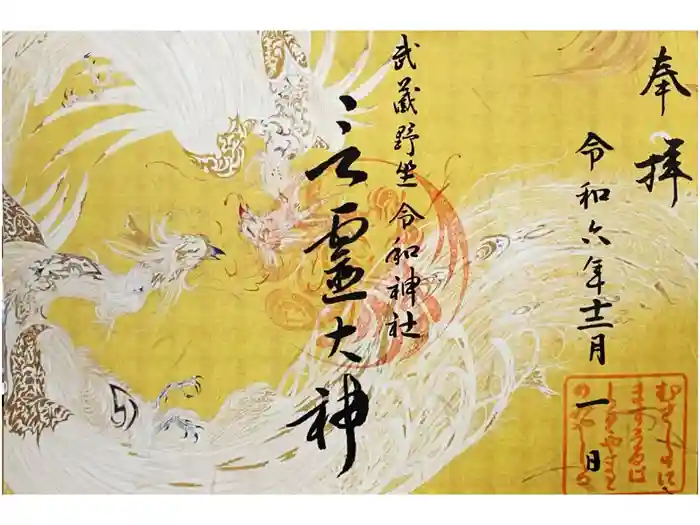 奉拝
令和六年十二月
一日
武蔵野坐令和神社
言霊大神
むさしのに
ますうるは
しきやまと
のみやしろ